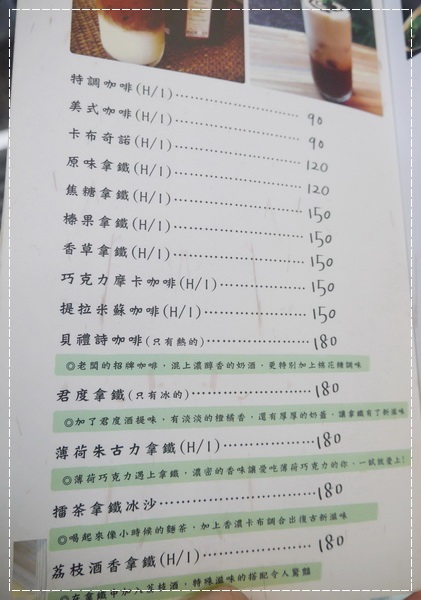 特調咖啡(H/I)⋯⋯⋯⋯⋯⋯ 90
美式咖啡(H/I)⋯⋯⋯⋯⋯⋯ 90
卡布奇諾(H/I)⋯⋯⋯⋯⋯⋯ 120
原味拿鐵(H/I)⋯⋯⋯⋯⋯⋯ 120
焦糖拿鐵(H/I)⋯⋯⋯⋯⋯⋯ 150
榛果拿鐵(H/I)⋯⋯⋯⋯⋯⋯ 150
香草拿鐵(H/I)⋯⋯⋯⋯⋯⋯ 150
巧克力摩卡咖啡(H/I)⋯⋯⋯⋯ 150
提拉米蘇咖啡(H/I)⋯⋯⋯⋯⋯ 150
貝禮詩咖啡(只有熱的)⋯⋯⋯⋯ 180
◎老闆的招牌咖啡，混上濃醇香的奶酒，更特別加上棉花糖調味
君度拿鐵(只有冰的)⋯⋯⋯⋯⋯ 180
◎加了君度酒提味，有淡淡的橙橘香，還有厚厚的奶蓋，讓拿鐵有了新滋味
薄荷朱古力拿鐵(H/I)⋯⋯⋯⋯ 180
◎薄荷巧克力遇上拿鐵，濃密的香味讓愛吃薄荷巧克力的你，一試就愛上!
擂茶拿鐵冰沙⋯⋯⋯⋯⋯⋯⋯ 180
◎喝起來像小時候的麵茶，加上香濃卡布調合出復古新滋味
荔枝酒香拿鐵(H/I)⋯⋯⋯⋯⋯ 180
◎在拿鐵中加入荔枝酒，特殊滋味的搭配令人驚豔